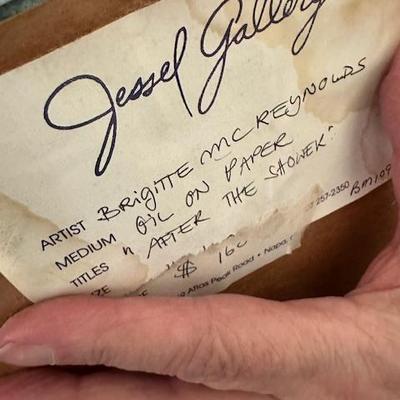 Jessel Gallery
ARTIST BRIGITTE MCREYNOLDS
MEDIUM OIL ON PAPER
TITLES "AFTER THE SHOWER"
$ 160
Atlas Peak Road • Napa, 257-2350 BM109